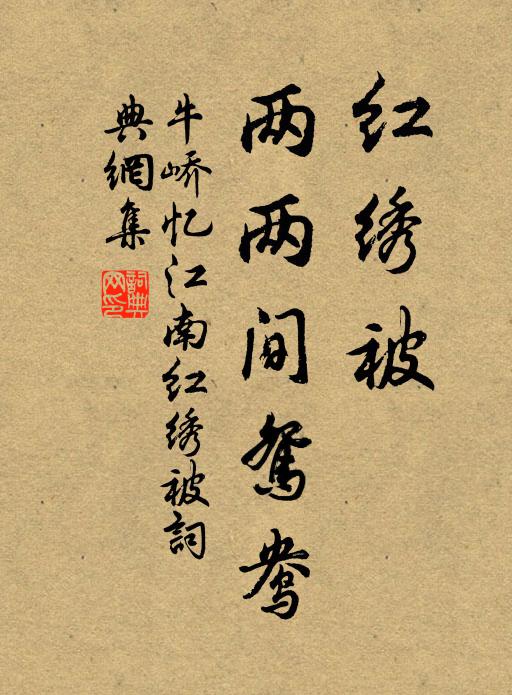 红绣被
两两间鸳鸯
牛峤忆江南红绣被词
典網集
詞典網印